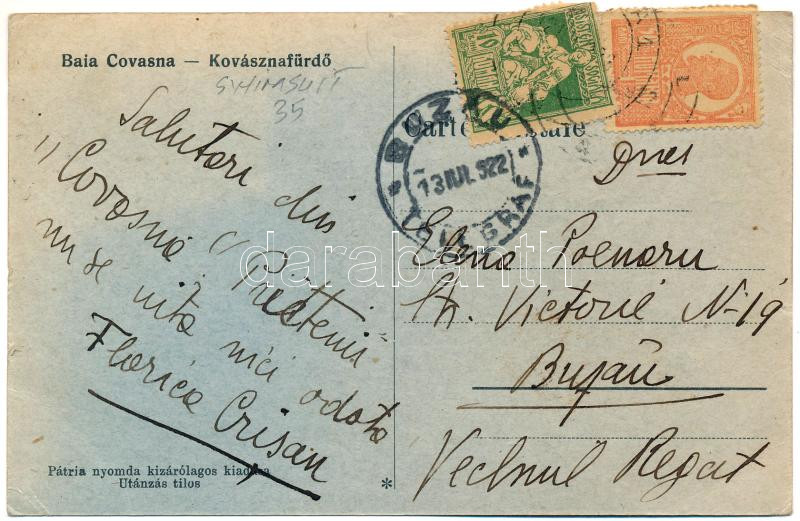 Baia Covasna — Kovásznafürdő
35
Salutari din
"Covasna". Prietenii
nu se uita nici odata
Florica Crisan
Pátria nyomda kizárólagos kiadása
Utánzás tilos
*
Carte Postale
BUZĂU
13 IUL 922
TELEGRAF
Dnei
Elena Poenaru
Str. Victorie N-19
Buzău
Vechiul Regat
darabanth